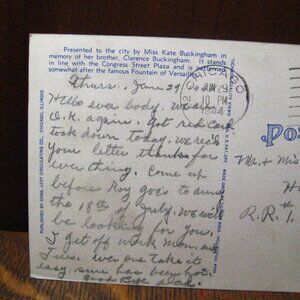 Presented to the city by Miss Kate Buckingham in
memory of her brother, Clarence Buckingham. It stands
in line with the Congress Street Plaza and is patterned
somewhat after the famous Fountain of Versailles.
Thurs. June 29
CHICAGO
JUN 29
10 PM
1944
Hello ever body. we are
O.K. again. got red card
took down today. we rec'd
your letter thanks for
ever thing. come up
before Roy goes to army
the 18th of July. we will
be looking for you.
I get off work mon. and
Tues. ever one take it
easy sure has been hot.
Good Bye
PUBLISHED BY CHAS. LEVY CIRCULATING CO., CHICAGO, ILLINOIS
Pos
Mr. + M
H
R.R. 1.